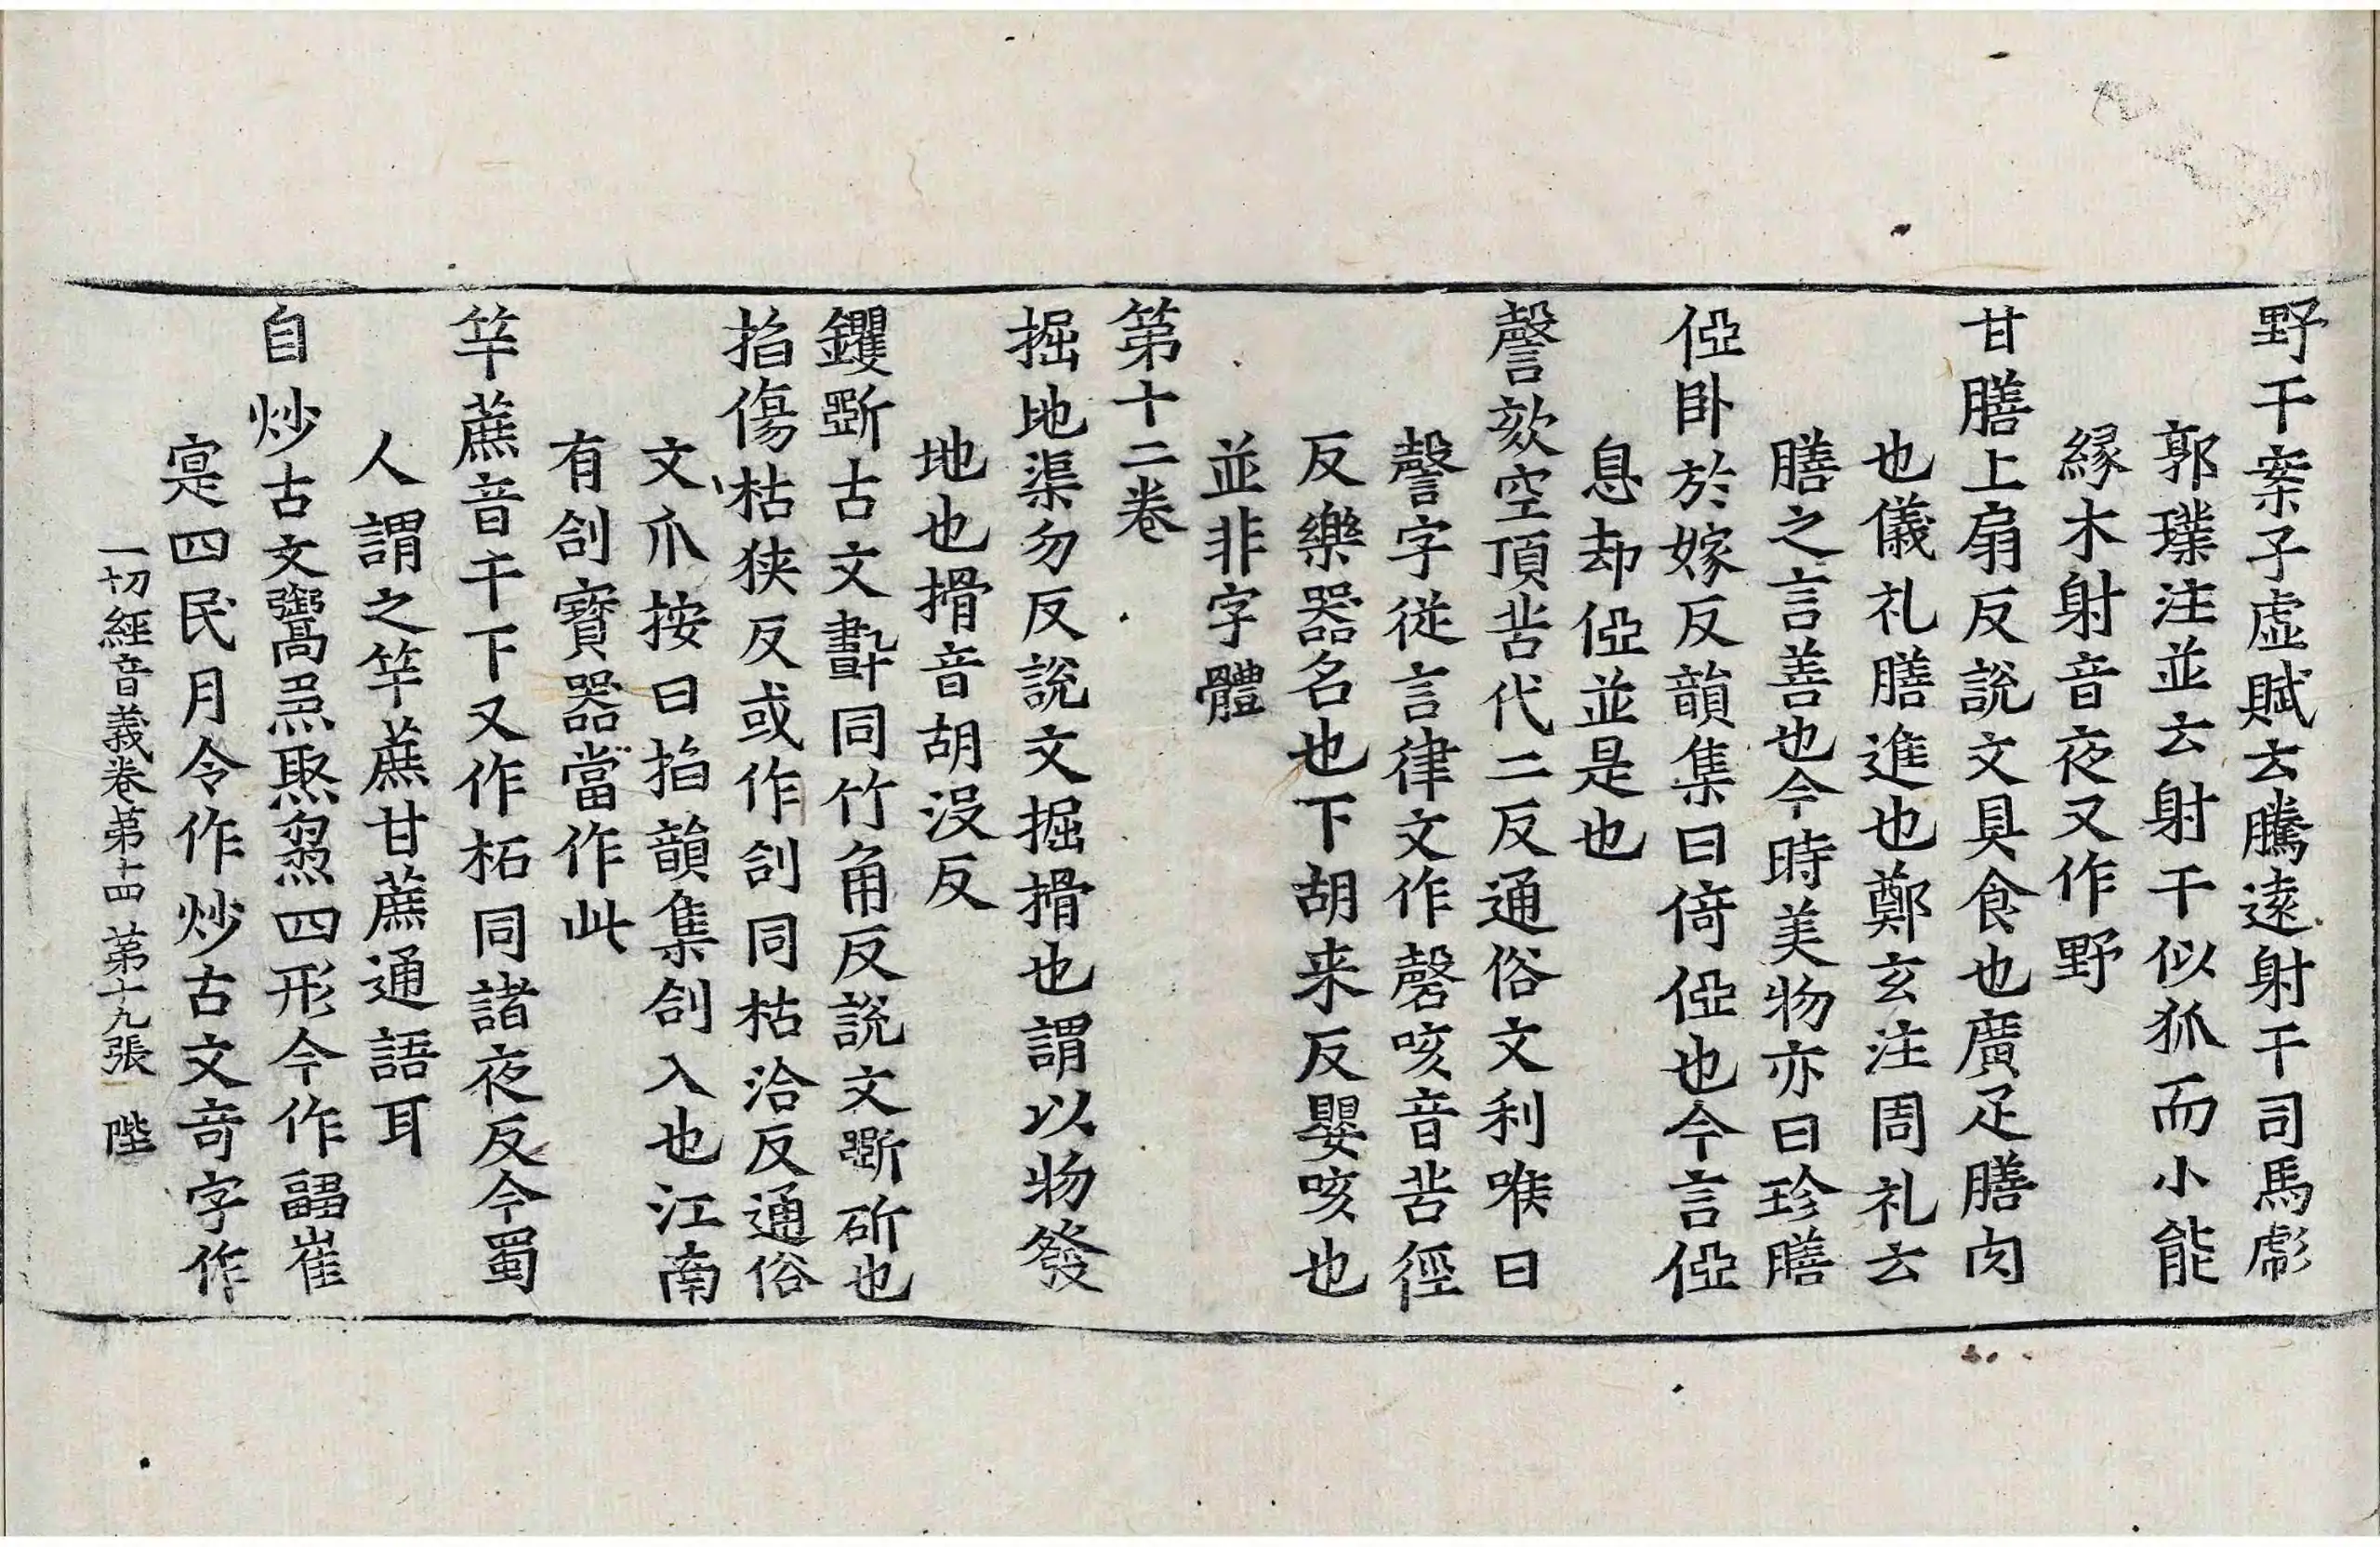 野干案子虛賦云騰遠射干司馬彪
郭璞注並云射干似狐而小能
緣木射音夜又作野
甘膳上扇反說文具食也廣疋膳肉
也儀礼膳進也鄭玄注周礼云
膳之言善也今時美物亦曰珍膳
俹卧於嫁反韻集曰倚俹也今言俹
息却俹並是也
謦欬空頂苦代二反通俗文利喉曰
謦字從言律文作磬咳音苦徑
反樂器名也下胡来反嬰咳也
並非字體
第十二卷
掘地渠勿反說文掘搰也謂以物發
地也搰音胡沒反
钁斲古文同竹角反說文斲斫也
掐傷枯狹反或作刮同枯洽反通俗
文爪按曰掐韻集刉入也江南
有刉寶器當作此
竿蔗音干下又作柘同諸夜反今蜀
人謂之竿蔗甘蔗通語耳
自炒古文四形今作崔
寔四民月令作炒古文奇字作
一切經音義卷第十四 第十九張 陛